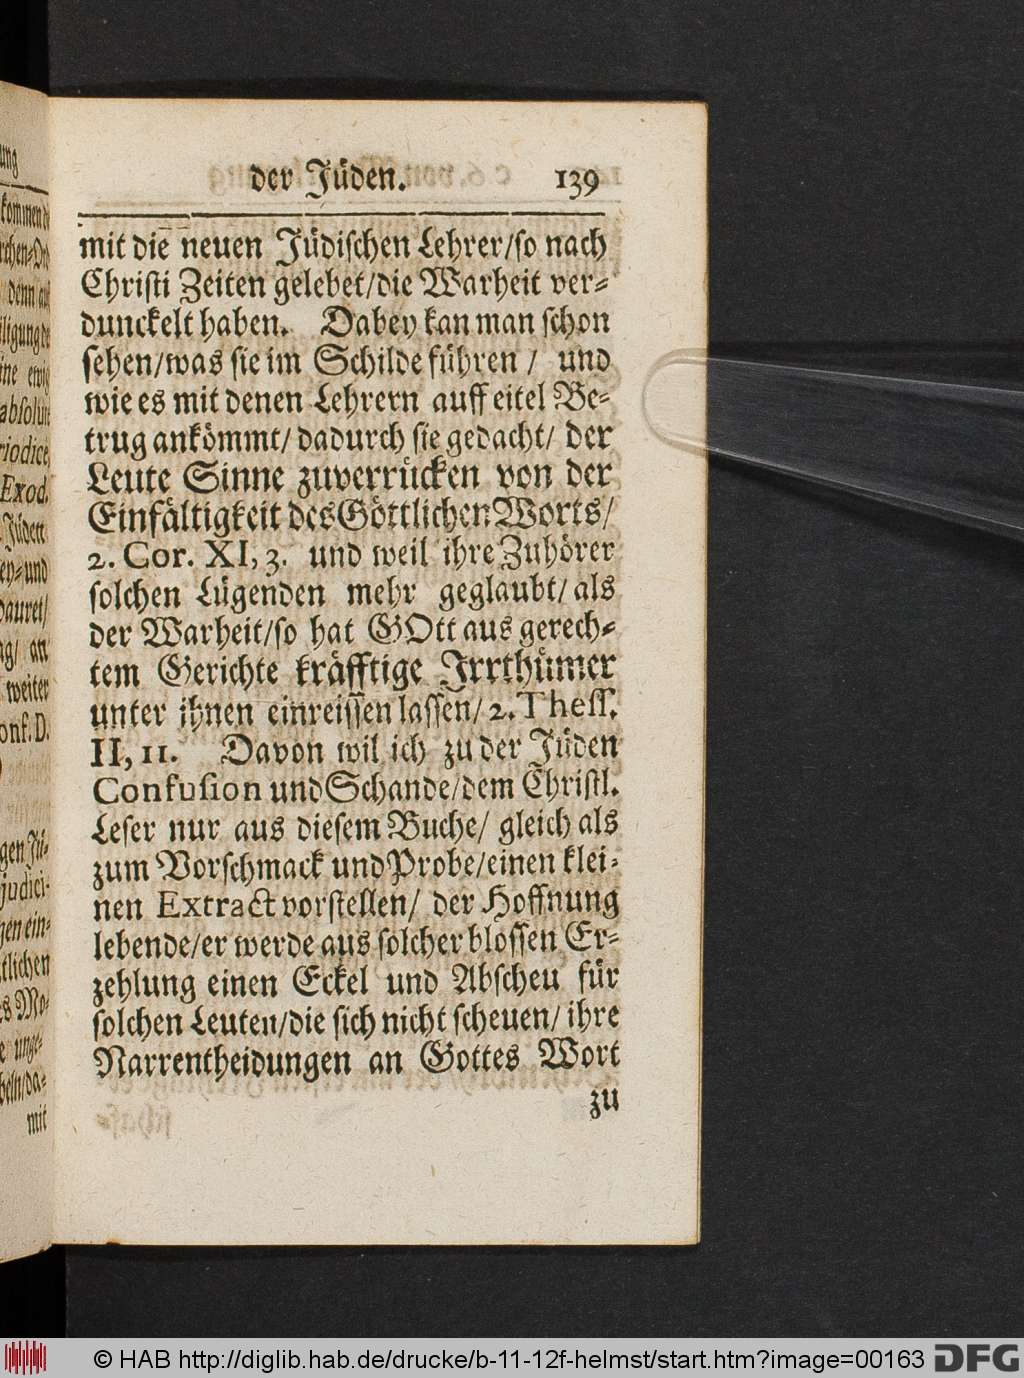 der Jüden. 139
mit die neuen Jüdischen Lehrer/so nach
Christi Zeiten gelebet/die Warheit ver-
dunckelt haben. Dabey kan man schon
sehen/was sie im Schilde führen / und
wie es mit denen Lehrern auff eitel Be-
trug ankömmt/ dadurch sie gedacht/ der
Leute Sinne zuverrücken von der
Einfältigkeit des Göttlichen Worts/
2. Cor. XI, 3. und weil ihre Zuhörer
solchen Lügenden mehr geglaubt/ als
der Warheit/so hat GOtt aus gerech-
tem Gerichte kräfftige Irrthümer
unter ihnen einreissen lassen/ 2. Thess.
II, 11. Davon wil ich zu der Jüden
Confusion und Schande/dem Christl.
Leser nur aus diesem Buche/ gleich als
zum Vorschmack und Probe/einen klei-
nen Extract vorstellen/ der Hoffnung
lebende/er werde aus solcher blossen Er-
zehlung einen Eckel und Abscheu für
solchen Leuten/die sich nicht scheuen/ ihre
Narrentheidungen an Gottes Wort
zu
ung
kommen
denn
absolut
riodice,
Exod.
Jüden
ey-und
dauret/
weiter
onf. D.
gen Jü-
judici-
gen ein-
tlichen
mit
© HAB http://diglib.hab.de/drucke/b-11-12f-helmst/start.htm?image=00163
DFG